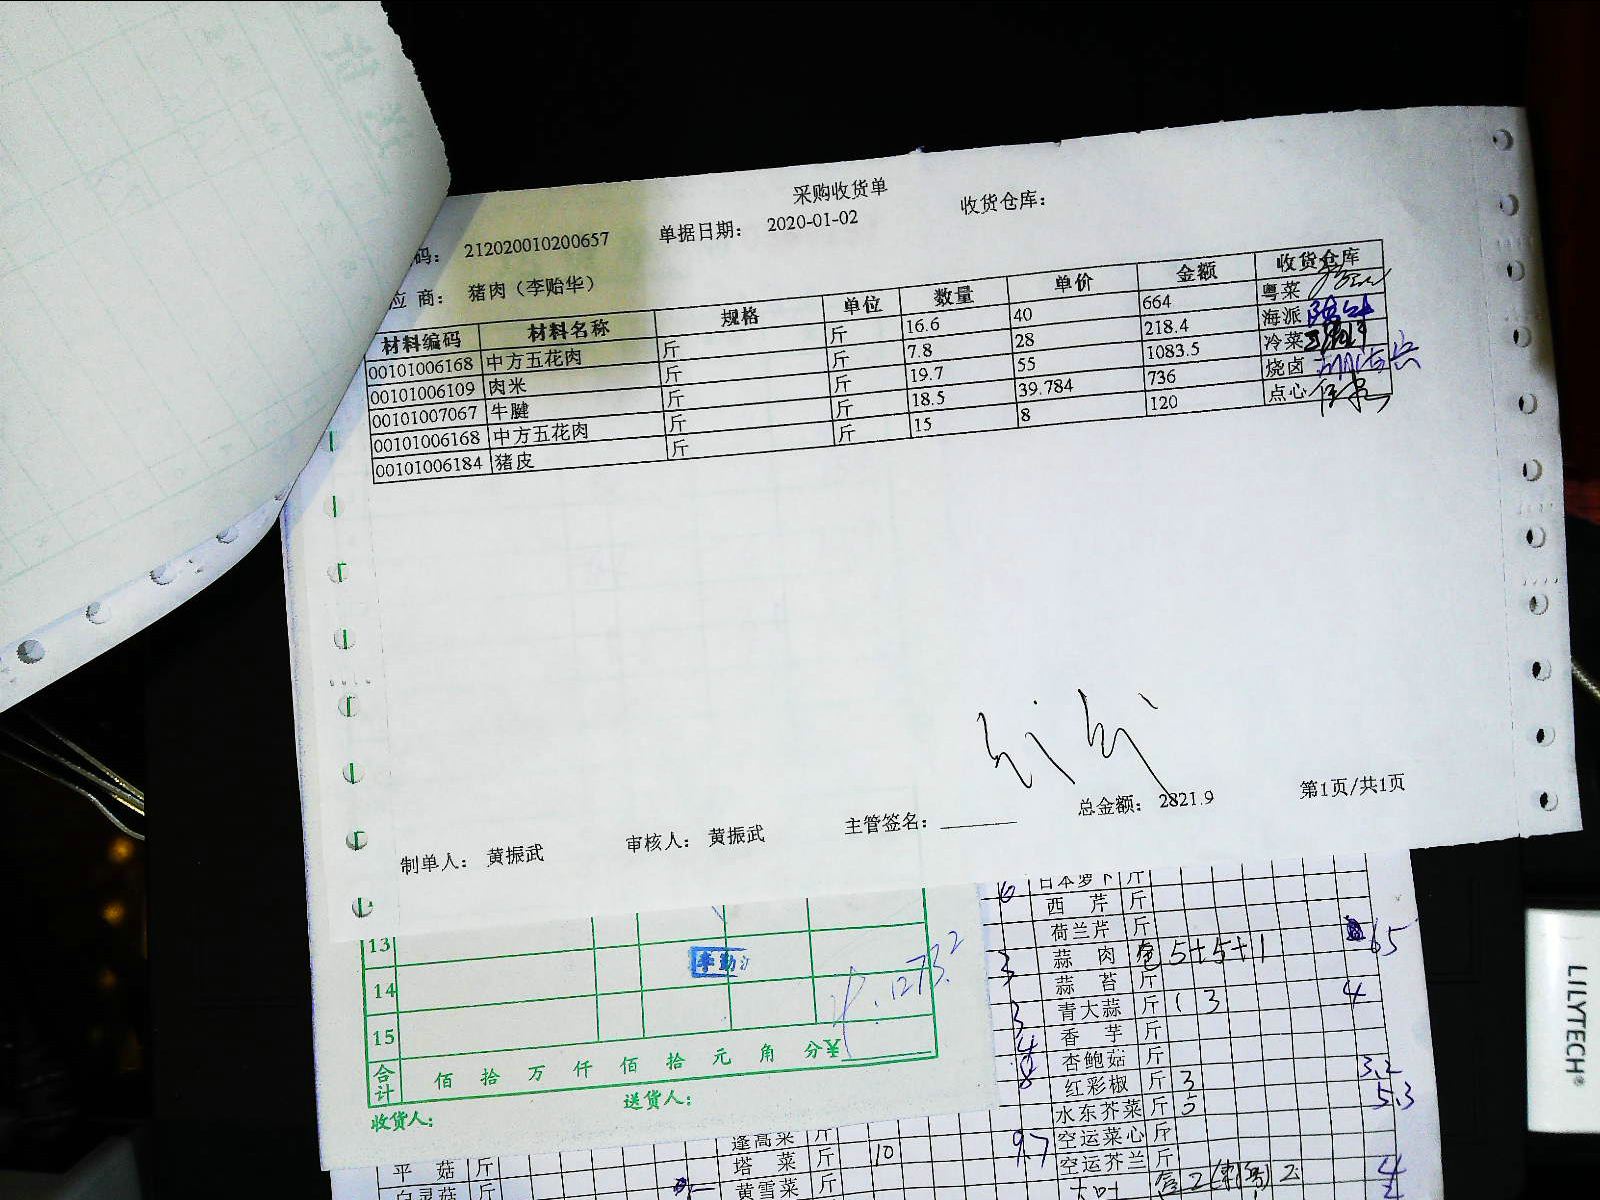 采购收货单
码： 212020010200657 单据日期： 2020-01-02 收货仓库：
应 商： 猪肉（李贻华）
材料编码 材料名称 规格 单位 数量 单价 金额 收货仓库
00101006168 中方五花肉 斤 斤 16.6 40 664 粤菜
00101006109 肉米 斤 斤 7.8 28 218.4 海派
00101007067 牛腱 斤 斤 19.7 55 1083.5 冷菜
00101006168 中方五花肉 斤 斤 18.5 39.784 736 烧卤
00101006184 猪皮 斤 斤 15 8 120 点心
制单人： 黄振武 审核人： 黄振武 主管签名： 总金额： 2821.9 第1页/共1页
13
14
15
合计 佰 拾 万 仟 佰 拾 元 角 分¥
收货人： 送货人：
6 日本萝卜 斤
西 芹 斤
荷兰芹 斤
蒜 肉 包 5+5+1 65
蒜 苔 斤
3 青大蒜 斤 1 3 4
香 芋 斤
杏鲍菇 斤
8 红彩椒 斤 3 3.2
水东芥菜 斤 5 5.3
蓬蒿菜 斤 9.7 空运菜心 斤
平 菇 斤 塔 菜 斤 10 空运芥兰 斤
白灵菇 斤 黄雪菜 斤 4
LILYTECH®